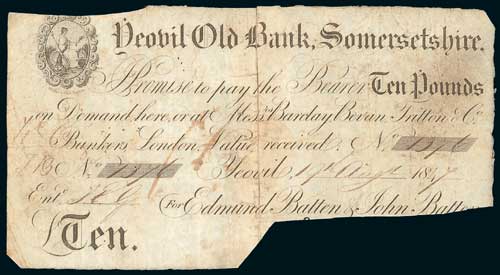 Yeovil Old Bank, Somersetshire.
I Promise to pay the Bearer Ten Pounds
on Demand here, or at Mess.rs Barclay Bevan Tritton & Co.
Bankers London. Value received. No. 1376
No. 1376 Yeovil, 19th Augt. 18
Entd. For Edmund Batten & John Batten
£Ten.